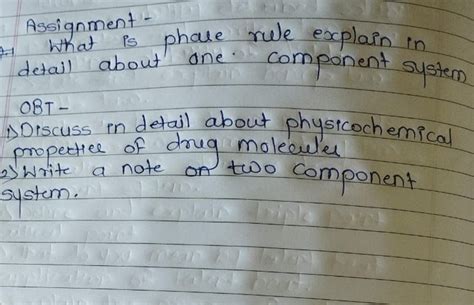 Assignment -
What is phase rule explain in
detail about one component system
OBT -
1) Discuss in detail about physicochemical
properties of drug molecules
2) Write a note on two component
system.